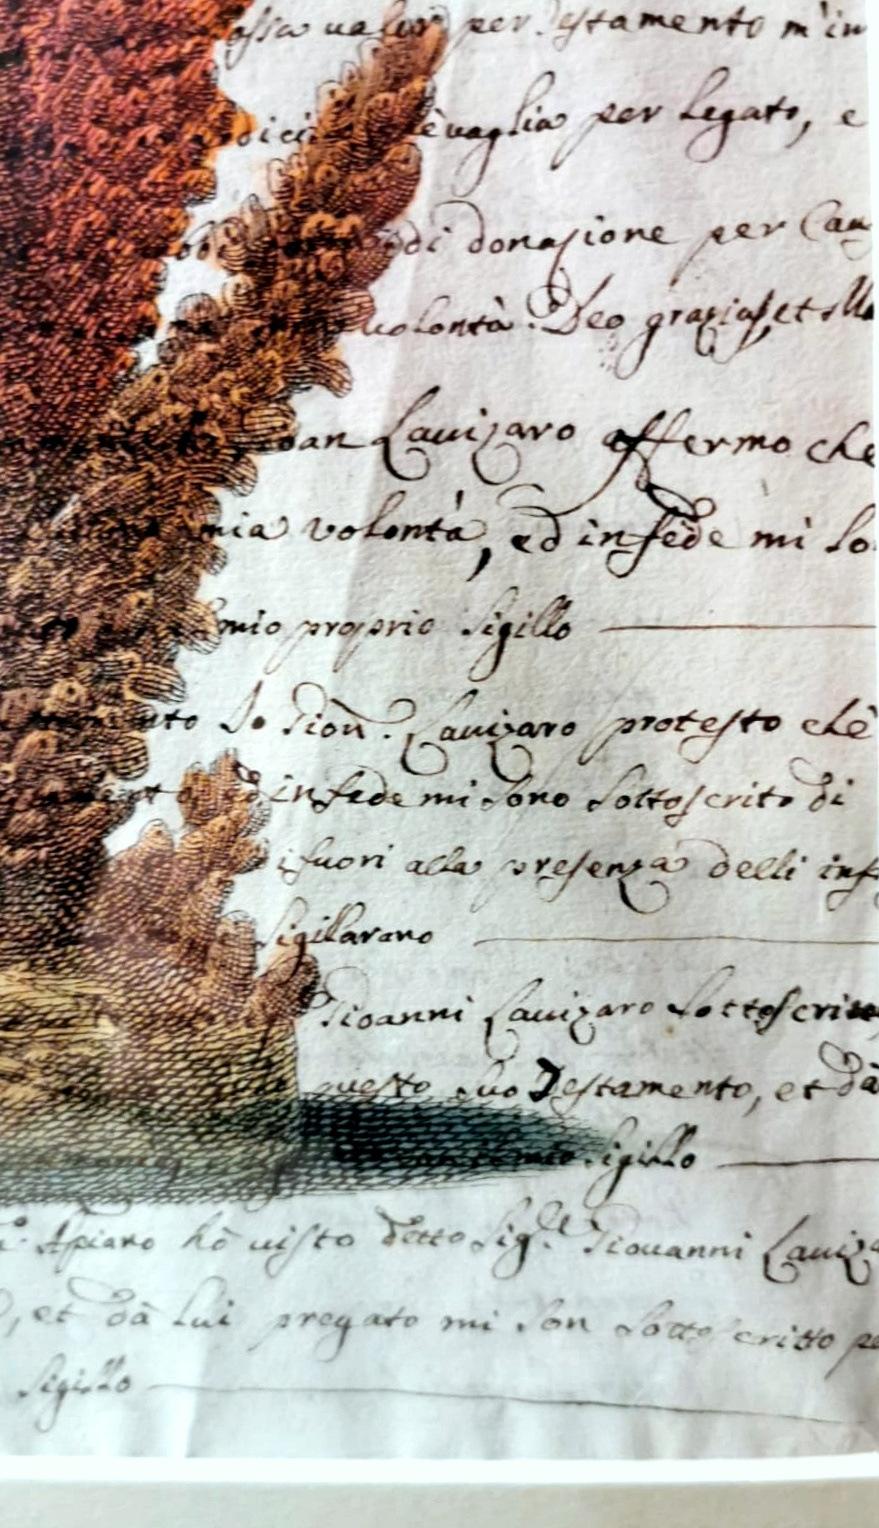 possa valer per Testamento m'in
vaglia per Legato, e
di donazione per Cau
volontà. Deo gratias, et
Lavizaro affermo che
mia volontà, ed in fede mi so
mio proprio Sigillo
Io Gion. Lavizaro protesto chè
in fede mi sono sottoscrito di
fuori alla presenza delli inf
Sigillarano
Gioanni Lavizaro sottoscritto
questo suo Testamento, et dà
mio Sigillo
Apiano hò visto detto Sig.r Giovanni Laviza
, et dà Lui pregato mi son sottoscritto pe
Sigillo